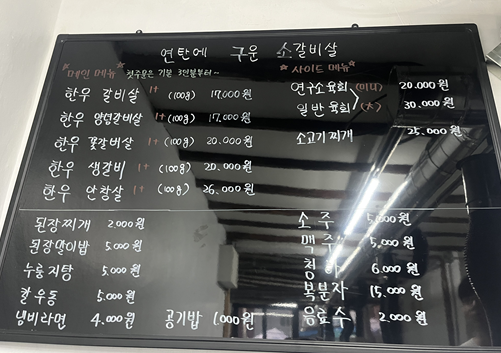 연탄에 구운 소갈비살
메인 메뉴 첫주문은 기본 3인분부터~
한우 갈비살 1+ (100g) 17,000원
한우 양념갈비살 1+ (100g) 17,000원
한우 꽃갈비살 1+ (100g) 20,000원
한우 생갈비 1+ (100g) 20,000원
한우 안창살 1+ (100g) 26,000원
사이드 메뉴
연구소육회 (미니) 20,000원
일반육회 (大) 30,000원
소고기찌개 25,000원
된장찌개 2,000원
된장말이밥 5,000원
누룽지탕 5,000원
칼우동 5,000원
냄비라면 4,000원
공기밥 1,000원
소주 5,000원
맥주 5,000원
청하 6,000원
복분자 15,000원
음료수 2,000원